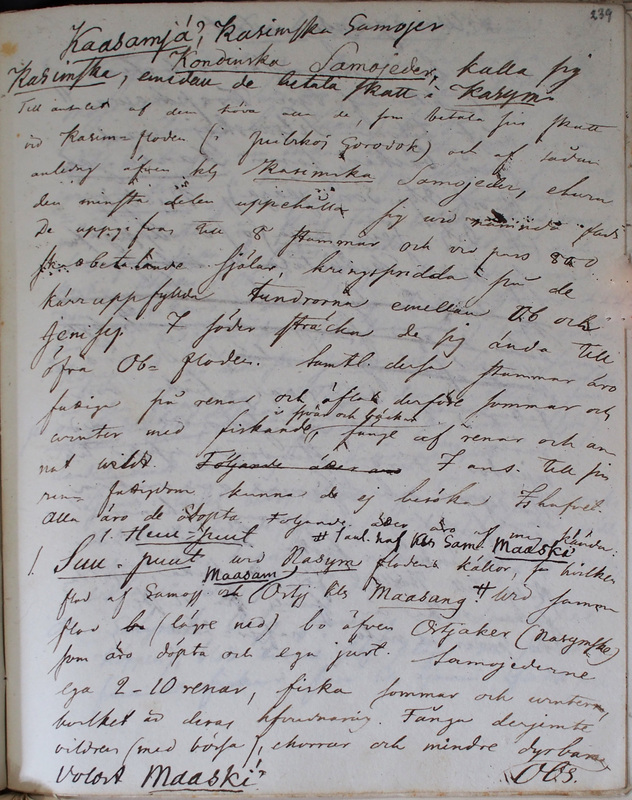 239
Kaasamjá? Kasimska Samojer
Kondinska Samojeder, kalla sig
Kasimska, emedan de betala skatt i Kasym
Till antalet af dem höra alla de, som betala sin skatt
vid Kasim-floden (i Juilskoj Gorodok) och af sådan
anledng äfven kls Kasimska Samojeder, ehuru
den minsta delen uppehålla sig wid nämnda flod.
De uppgifvas till 8 stammar och vid pass
skattbetalande själar, kringspridda på de
kärruppfyllda Tundrorna emellan Ob och
Jenisej. I söder sträcka de sig ända till
öfra Ob-floden. Samtl. dessa stammar äro
fattige på renar och derföre sommar och
winter med fiskande, fånge af renar och an
i sjöar och bäckar
nat wildt. Följande I ans. till sin
fattigdom kunna de ej besöka Ishafvet.
Alla äro de döpta. Följande äro af mig kända:
1. Heuu-puut # kls Sam. Maaski
1. Suu-puut wid Nasym flodens källor, hvilken
Maasam
flod af Samoj och Ostj kls Maasang # Wid samma
flod (lägre ned) bo äfven Ostjaker (Nasymske)
som äro döpta och ega jurt. Samojederne
ega 2-10 renar, fiska sommar och winter,
hvilket är deras hfvudnäring. Fånga dessimte
vildren (med bössa), ekorrar och mindre dyrbara
Volost Maaski?
Obs.